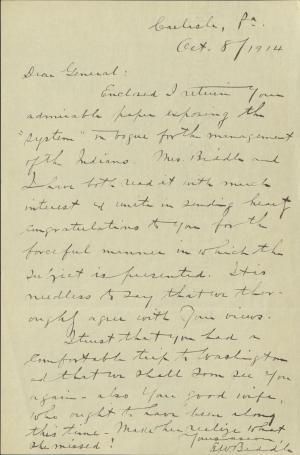 Carlisle, Pa.
Oct. 8/1914
Dear General:
Enclosed I return your
admirable paper exposing the
"System" in vogue for the management
of the Indians. Mrs. Biddle and
I have both read it with much
interest & unite in sending hearty
congratulations to you for the
forceful manner in which the
subject is presented. It is
needless to say that we thor-
oughly agree with your views.
I trust that you had a
comfortable trip to Washington
and that we shall soon see you
again - also your good wife,
who ought to have been along
this time - Make her realize what
she missed!
E W Biddle